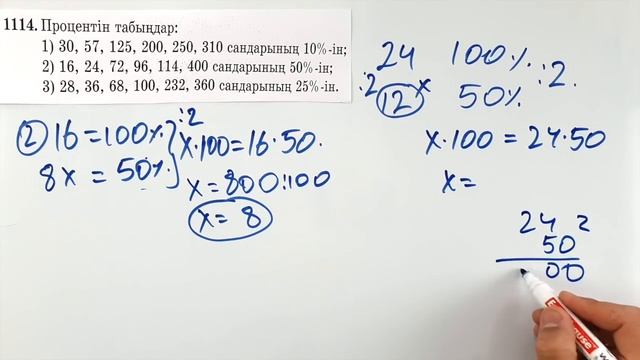 1114. Процентін табыңдар:
1) 30, 57, 125, 200, 250, 310 сандарының 10%-ін;
2) 16, 24, 72, 96, 114, 400 сандарының 50%-ін;
3) 28, 36, 68, 100, 232, 360 сандарының 25%-ін.
2 16 = 100% :2
8 x = 50%
x·100 = 16·50.
x = 800:100
x = 8
24 100% :2.
:2 12 x 50%
x·100 = 24·50
x =
24 2
50
00